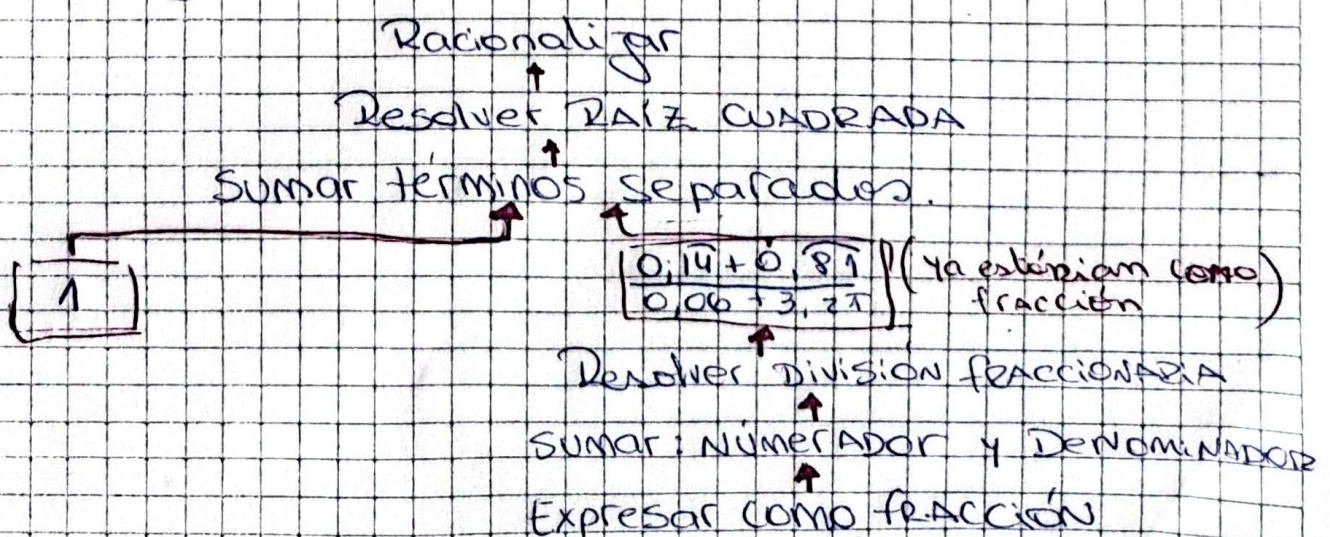 Racionalizar
Resolver RAÍZ CUADRADA
Sumar términos separados.
1
0,14 + 0,81 (ya estarían como
0,06 + 3,21 fracción)
Resolver DIVISIÓN FRACCIONARIA
SUMAR: NÚMERADOR Y DENOMINADOR
Expresar como fRACCIÓN